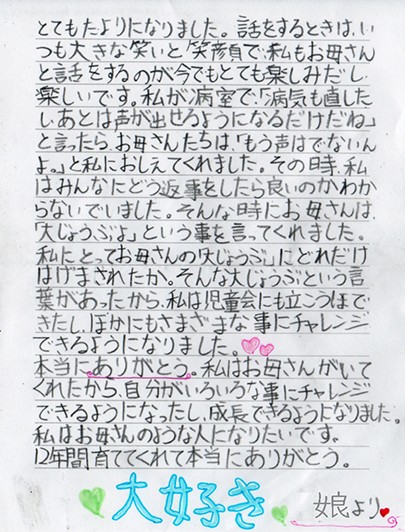 とてもたよりになりました。話をするときは、い
つも大きな笑いと「笑顔で、私もお母さん
と話をするのが今でもとても楽しみだし、
楽しいです。私が病室で、「病気も直した
し、あとは声が出せるようになるだけだね」
と言ったら、お母さんたちは、「もう声はでないん
よ。」と私におしえてくれました。その時、私
はみんなにどう返事をしたら良いのかわか
らないでいました。そんな時にお母さんは、
「大じょうぶよ」という事を言ってくれました。
私にとってお母さんの「大じょうぶ」にどれだけ
はげまされたか。そんな大じょうぶという言
葉があったから、私は児童会にも立こうほで
きたし、ほかにもさまざまな事にチャレンジ
できるようになりました。
本当にありがとう。私はお母さんがいて
くれたから、自分がいろいろな事にチャレンジ
できるようになったし、成長できるようになりました。
私はお母さんのような人になりたいです。
12年間育ててくれて本当にありがとう。
大好き 娘より